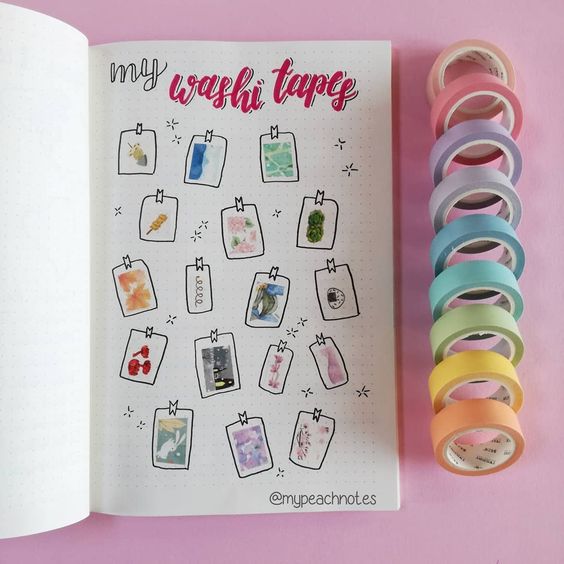 my
washi tapes
@mypeachnotes